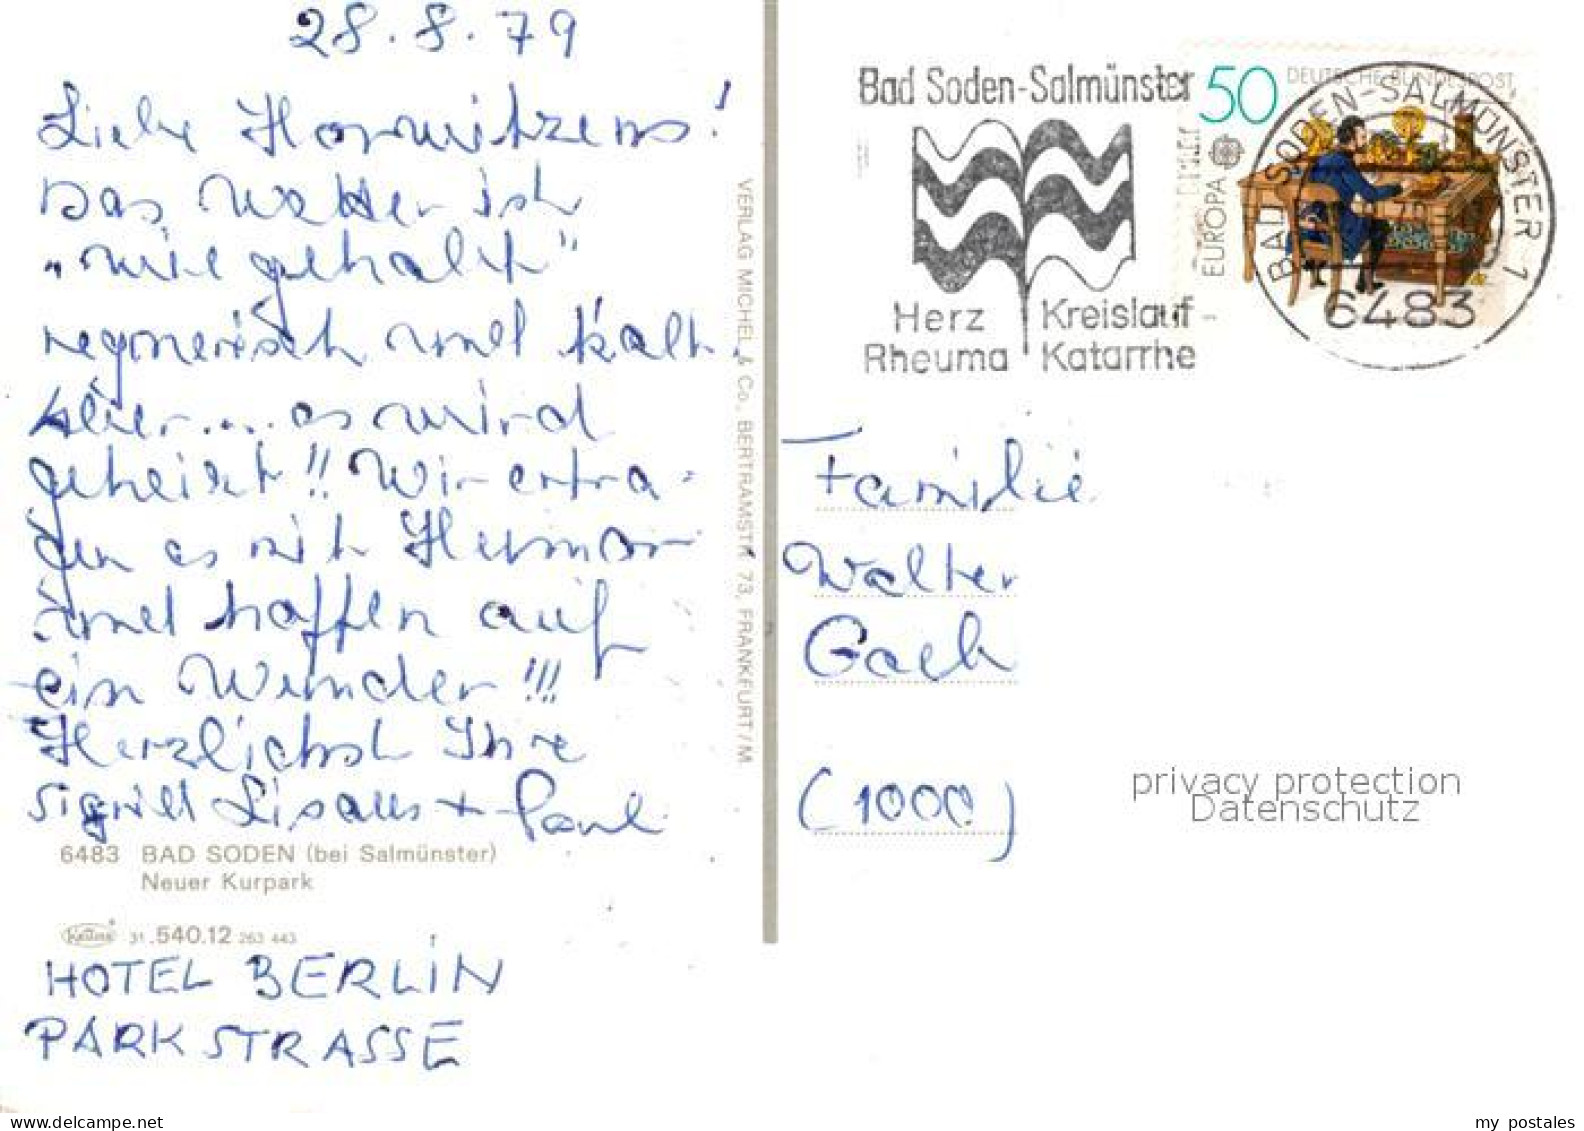 28.8.79
Liebe Horwitzens!
Das Wetter ist
"wie gehabt"
regnerisch und kalt.
Aber.... es wird
geheizt!! Wir ertra-
gen es mit Humor
und hoffen auf
ein Wunder!!!
Herzlichst Ihre
Sigrid + Paul
6483 BAD SODEN (bei Salmünster)
Neuer Kurpark
31 .540.12 263 443
HOTEL BERLIN
PARKSTRASSE
VERLAG MICHEL & Co., BERTRAMSTR. 73, FRANKFURT/M
Bad Soden-Salmünster
Herz Kreislauf
Rheuma Katarrhe
50 DEUTSCHE BUNDESPOST
EUROPA
BAD SODEN-SALMÜNSTER 1
6483
Familie
Walter
(1000)
privacy protection
Datenschutz
my postales